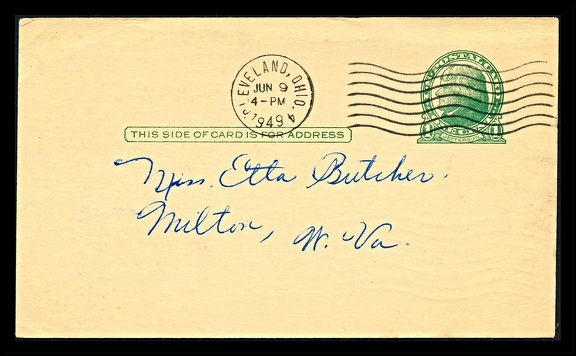 CLEVELAND, OHIO. 4
JUN 9
4-PM
1949
U.S. POSTAGE
1 CENT 1
JEFFERSON
THIS SIDE OF CARD IS FOR ADDRESS
Miss. Etta Butcher.
Milton, W. Va.